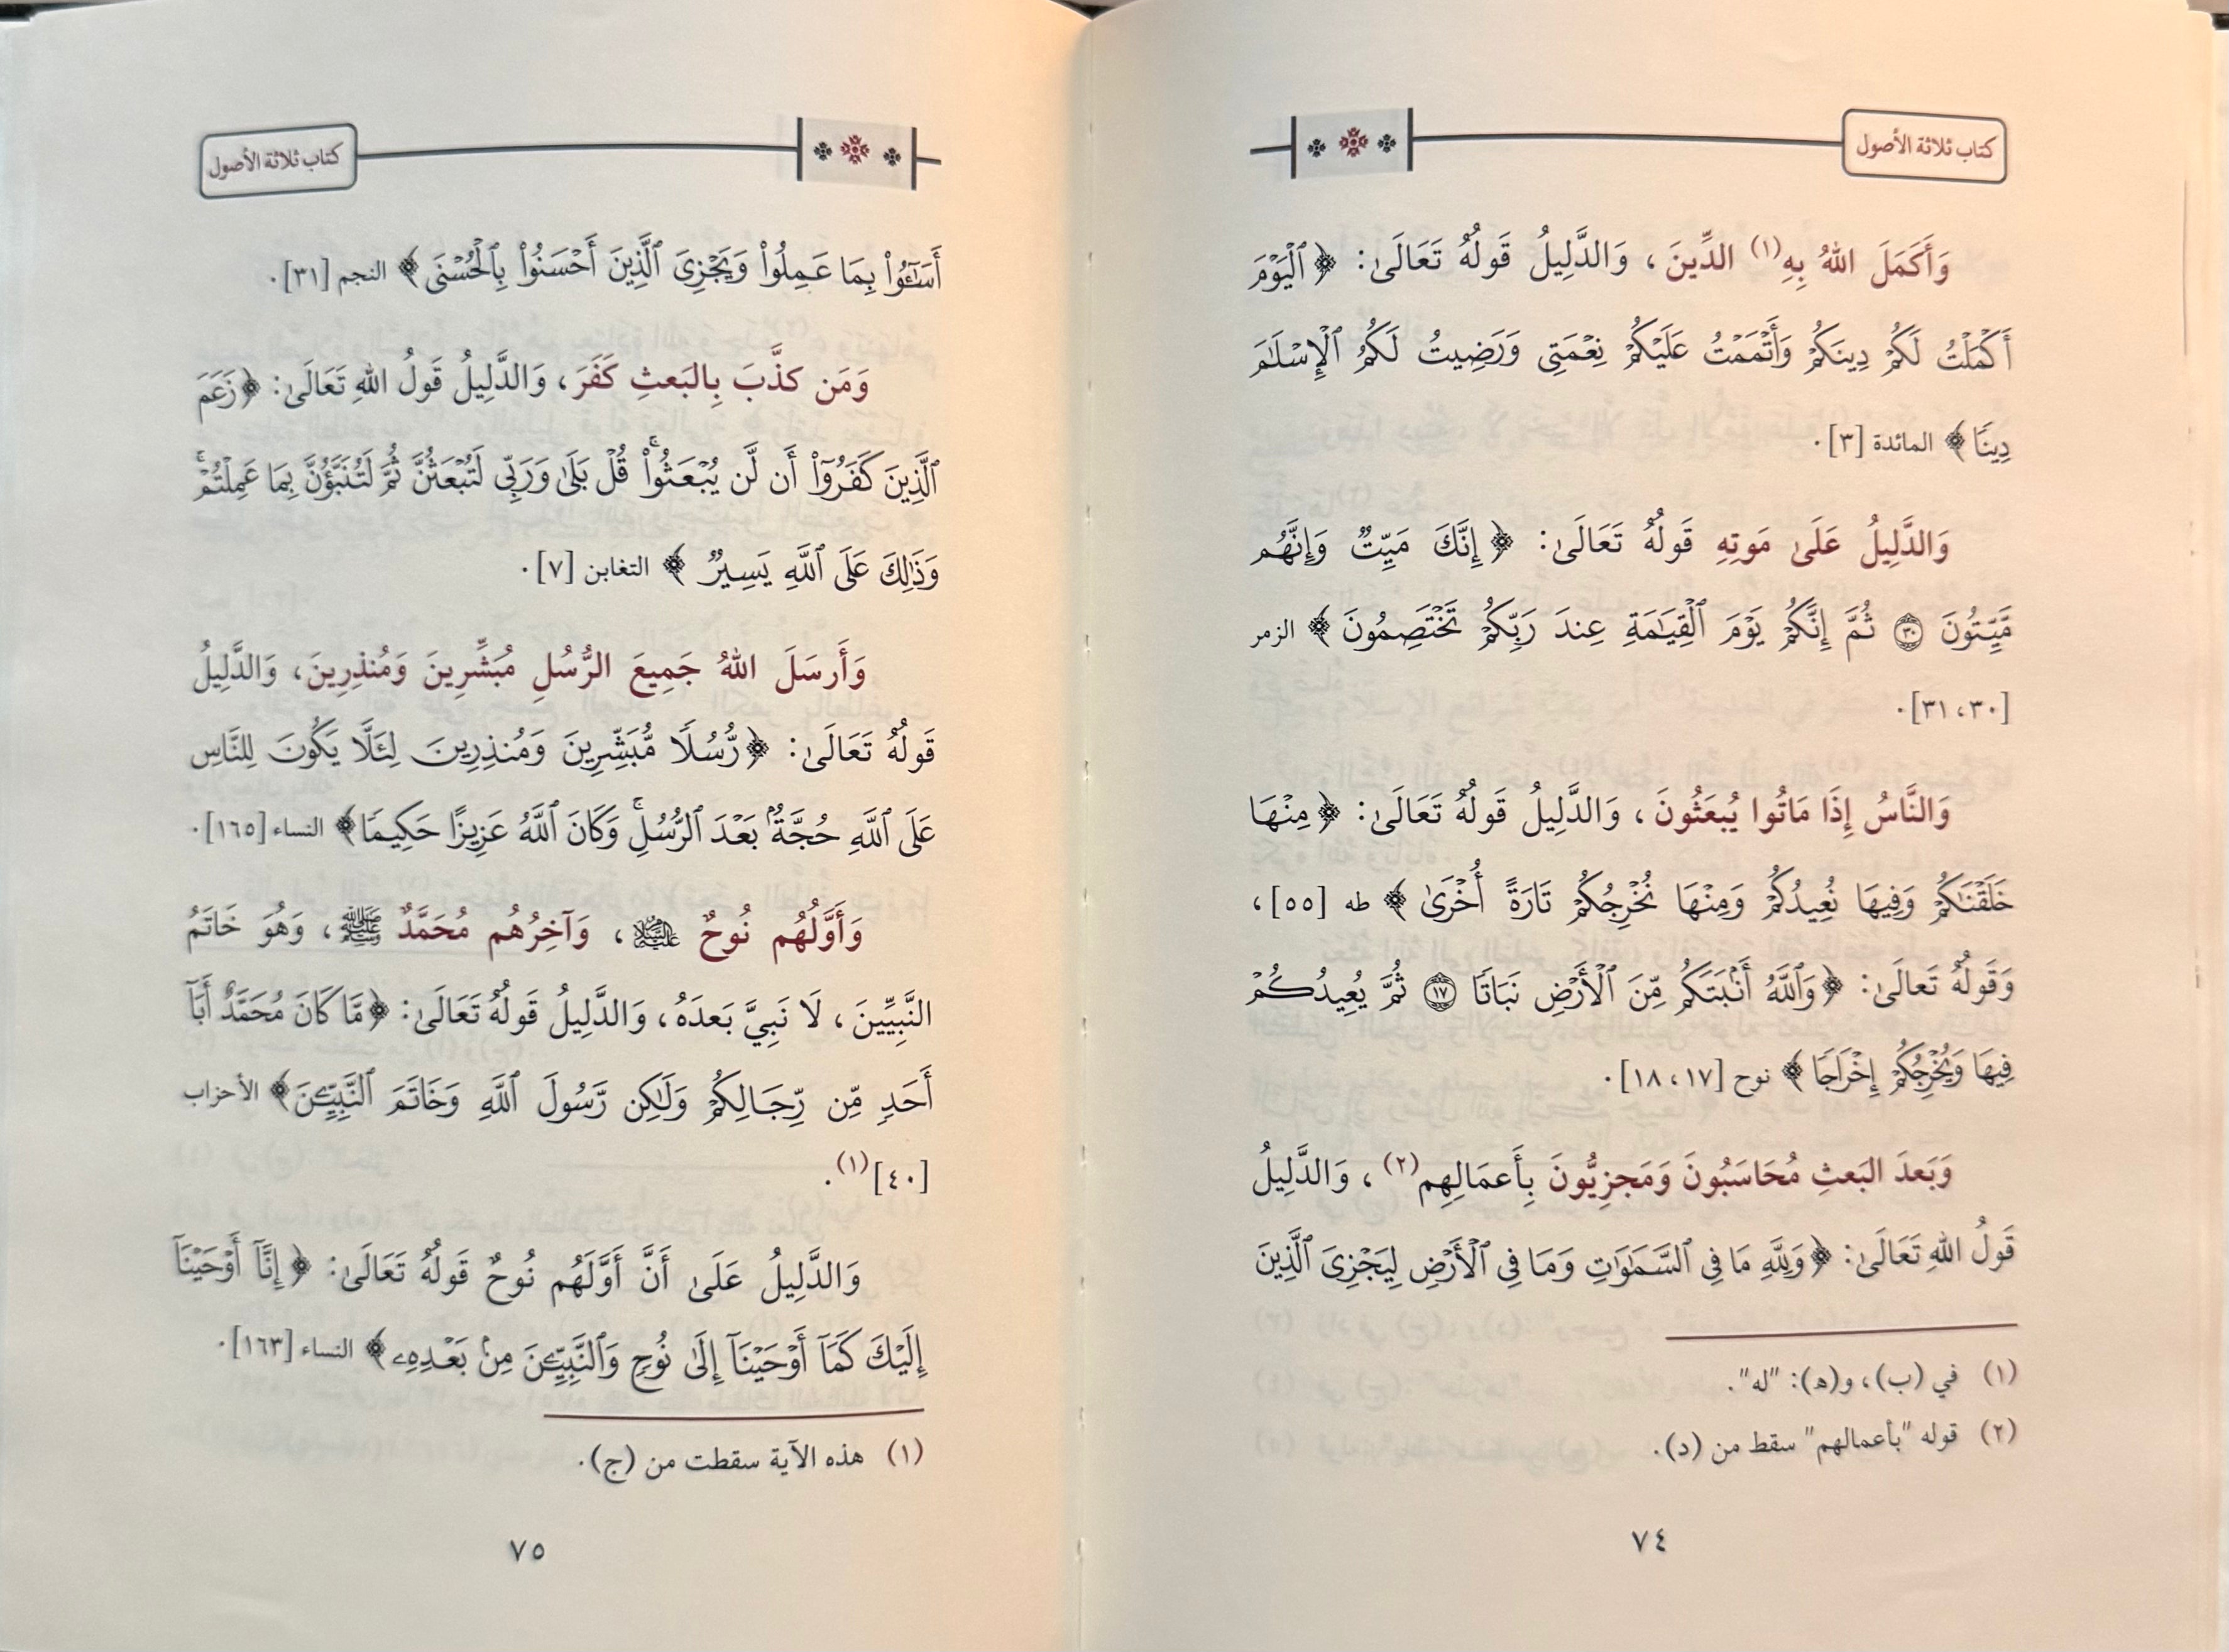 كتاب ثلاثة الأصول
وَأَكمَلَ اللهُ بِهِ(١) الدِّينَ، وَالدَّلِيلُ قَولُهُ تَعَالَىٰ: ﴿ ٱلْيَوْمَ
أَكْمَلْتُ لَكُمْ دِينَكُمْ وَأَتْمَمْتُ عَلَيْكُمْ نِعْمَتِى وَرَضِيتُ لَكُمُ ٱلْإِسْلَٰمَ
دِينًا ﴾ المائدة [٣].
وَالدَّلِيلُ عَلَىٰ مَوتِهِ قَولُهُ تَعَالَىٰ: ﴿ إِنَّكَ مَيِّتٌ وَإِنَّهُم
مَّيِّتُونَ ٣٠ ثُمَّ إِنَّكُمْ يَوْمَ ٱلْقِيَٰمَةِ عِندَ رَبِّكُمْ تَخْتَصِمُونَ ﴾ الزمر
[٣٠، ٣١].
وَالنَّاسُ إِذَا مَاتُوا يُبعَثُونَ، وَالدَّلِيلُ قَولُهُ تَعَالَىٰ: ﴿ مِنْهَا
خَلَقْنَٰكُمْ وَفِيهَا نُعِيدُكُمْ وَمِنْهَا نُخْرِجُكُمْ تَارَةً أُخْرَىٰ ﴾ طه [٥٥]،
وَقَولُهُ تَعَالَىٰ: ﴿ وَٱللَّهُ أَنۢبَتَكُم مِّنَ ٱلْأَرْضِ نَبَاتًا ١٧ ثُمَّ يُعِيدُكُمْ
فِيهَا وَيُخْرِجُكُمْ إِخْرَاجًا ﴾ نوح [١٧، ١٨].
وَبَعدَ البَعثِ مُحَاسَبُونَ وَمَجزِيُّونَ بِأَعمَالِهِم(٢)، وَالدَّلِيلُ
قَولُ اللهِ تَعَالَىٰ: ﴿ وَلِلَّهِ مَا فِى ٱلسَّمَٰوَٰتِ وَمَا فِى ٱلْأَرْضِ لِيَجْزِىَ ٱلَّذِينَ
(١) في (ب)، و(ه): "له".
(٢) قوله "بأعمالهم" سقط من (د).
٧٤
كتاب ثلاثة الأصول
أَسَٰٓـُٔوا۟ بِمَا عَمِلُوا۟ وَيَجْزِىَ ٱلَّذِينَ أَحْسَنُوا۟ بِٱلْحُسْنَى ﴾ النجم [٣١].
وَمَن كذَّبَ بِالبَعثِ كَفَرَ، وَالدَّلِيلُ قَولُ اللهِ تَعَالَىٰ: ﴿ زَعَمَ
ٱلَّذِينَ كَفَرُوٓا۟ أَن لَّن يُبْعَثُوا۟ۚ قُلْ بَلَىٰ وَرَبِّى لَتُبْعَثُنَّ ثُمَّ لَتُنَبَّؤُنَّ بِمَا عَمِلْتُمْۚ
وَذَٰلِكَ عَلَى ٱللَّهِ يَسِيرٌ ﴾ التغابن [٧].
وَأَرسَلَ اللهُ جَمِيعَ الرُّسُلِ مُبَشِّرِينَ وَمُنذِرِينَ، وَالدَّلِيلُ
قَولُهُ تَعَالَىٰ: ﴿ رُّسُلًا مُّبَشِّرِينَ وَمُنذِرِينَ لِئَلَّا يَكُونَ لِلنَّاسِ
عَلَى ٱللَّهِ حُجَّةٌۢ بَعْدَ ٱلرُّسُلِۚ وَكَانَ ٱللَّهُ عَزِيزًا حَكِيمًا ﴾ النساء [١٦٥].
وَأَوَّلُهُم نُوحٌ عليه السلام، وَآخِرُهُم مُحَمَّدٌ ﷺ، وَهُوَ خَاتَمُ
النَّبِيِّينَ، لَا نَبِيَّ بَعدَهُ، وَالدَّلِيلُ قَولُهُ تَعَالَىٰ: ﴿ مَّا كَانَ مُحَمَّدٌ أَبَآ
أَحَدٍ مِّن رِّجَالِكُمْ وَلَٰكِن رَّسُولَ ٱللَّهِ وَخَاتَمَ ٱلنَّبِيِّـۧنَ ﴾ الأحزاب
[٤٠](١).
وَالدَّلِيلُ عَلَىٰ أَنَّ أَوَّلَهُم نُوحٌ قَولُهُ تَعَالَىٰ: ﴿ إِنَّآ أَوْحَيْنَآ
إِلَيْكَ كَمَآ أَوْحَيْنَآ إِلَىٰ نُوحٍ وَٱلنَّبِيِّـۧنَ مِنۢ بَعْدِهِۦ ﴾ النساء [١٦٣].
(١) هذه الآية سقطت من (ج).
٧٥